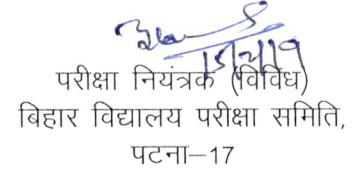 परीक्षा नियंत्रक (विविध)
बिहार विद्यालय परीक्षा समिति,
पटना–17